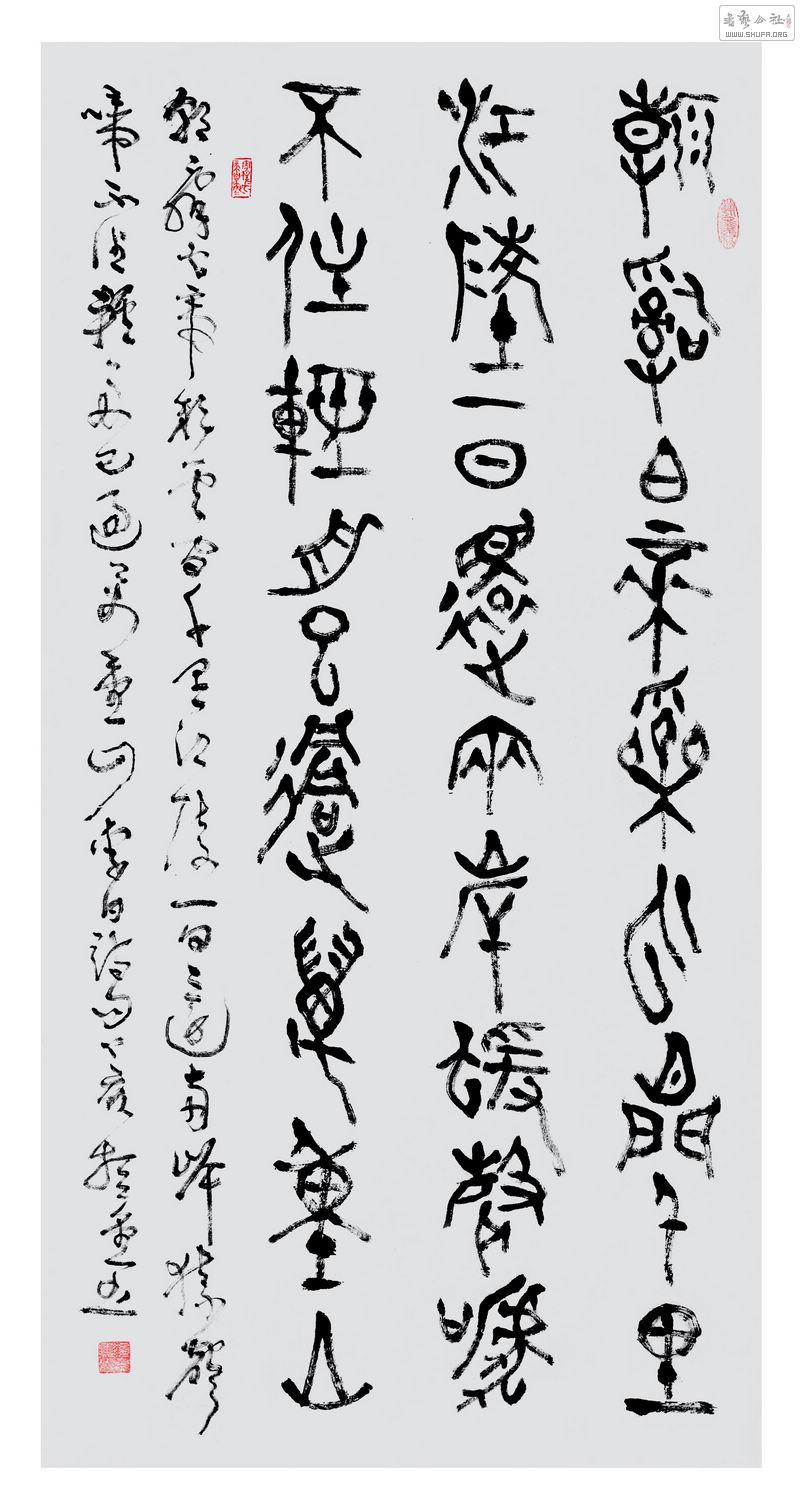 書藝公社
WWW.SHUFA.ORG
朝辭白帝彩雲間千里
江陵一日還兩岸猿聲啼
不住輕舟已過萬重山
朝辭白帝彩雲間千里江陵一日還兩岸猿聲
啼不住輕舟已過萬重山李白詩